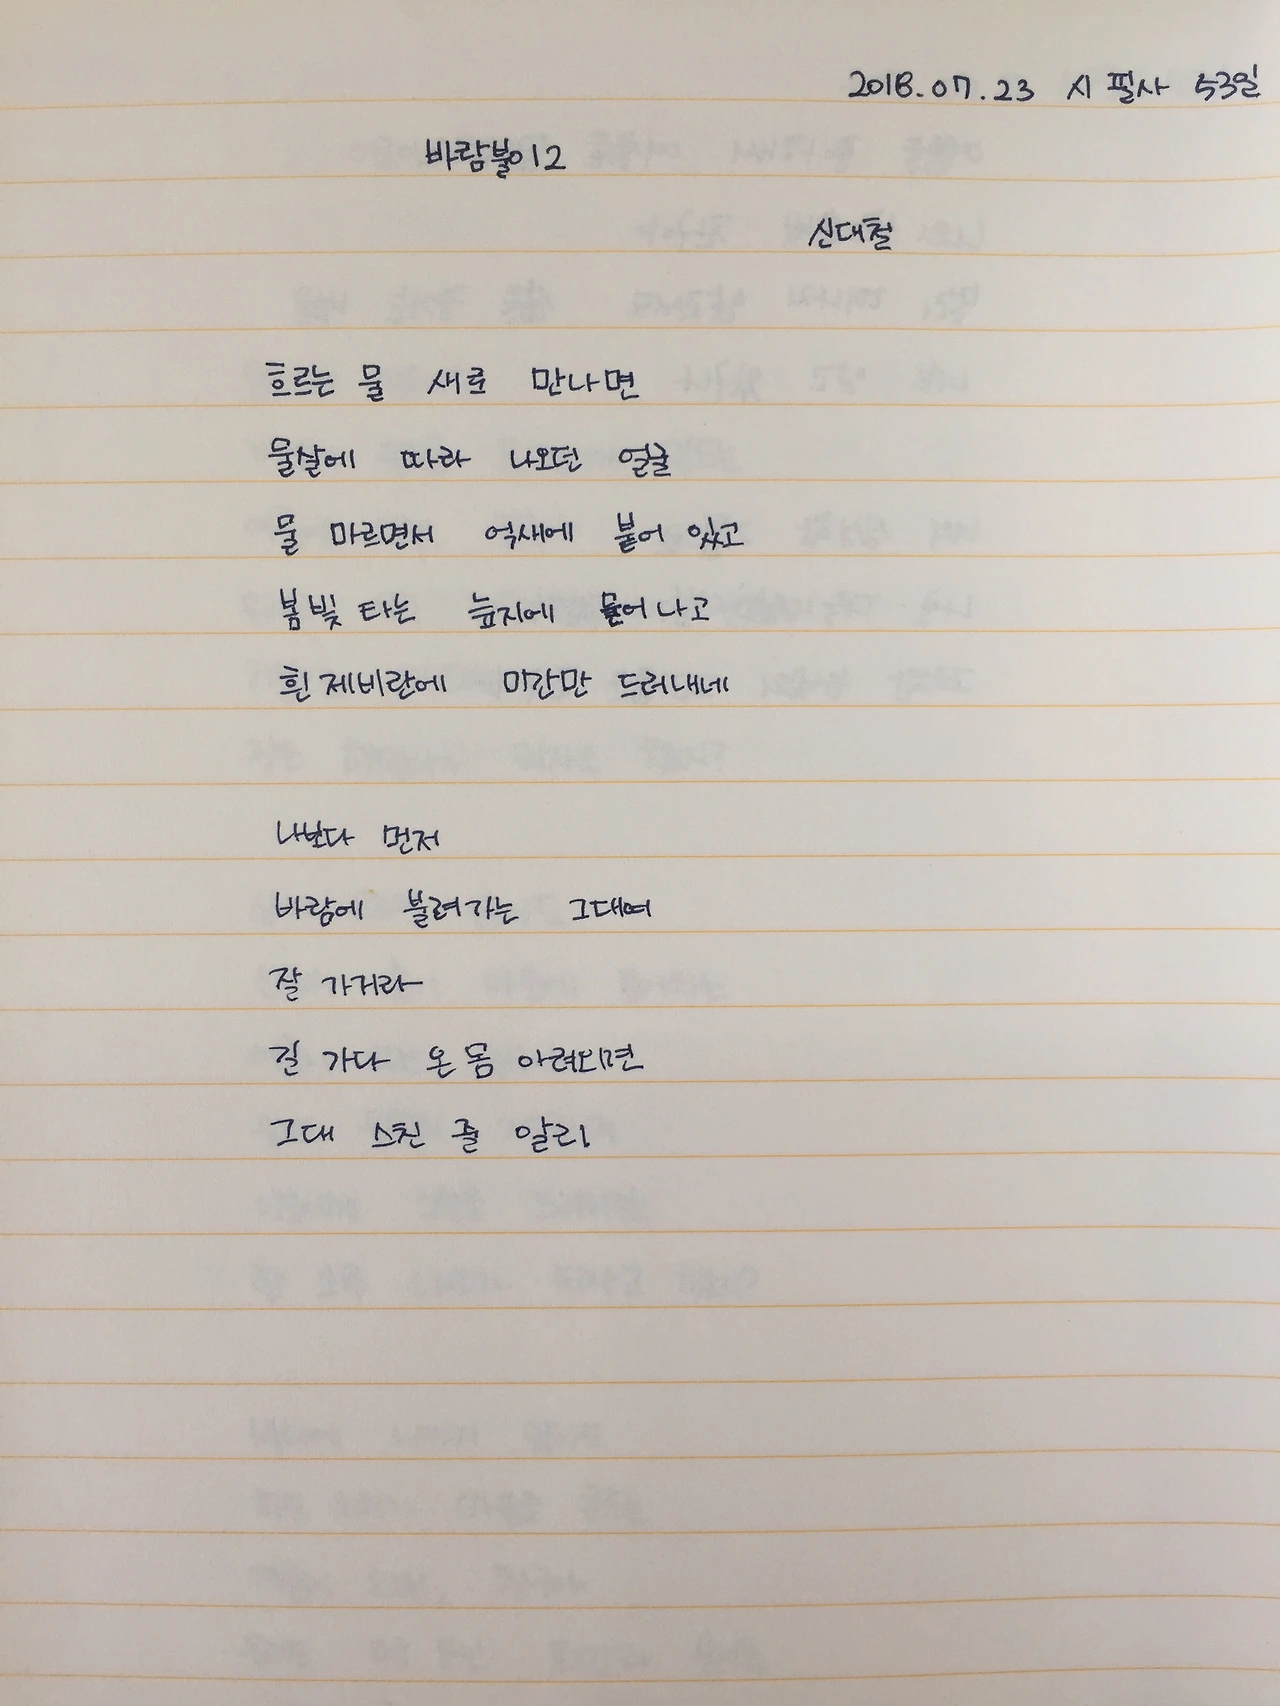 2018.07.23 시 필사 53일
바람불이2
신대철
흐르는 물 새로 만나면
물살에 따라 나오던 얼굴
물 마르면서 억새에 붙어 있고
봄빛 타는 늪지에 묻어나고
흰제비란에 미간만 드러내네
나보다 먼저
바람에 불려가는 그대여
잘 가거라
길 가다 온 몸 아려오면
그대 스친 줄 알리